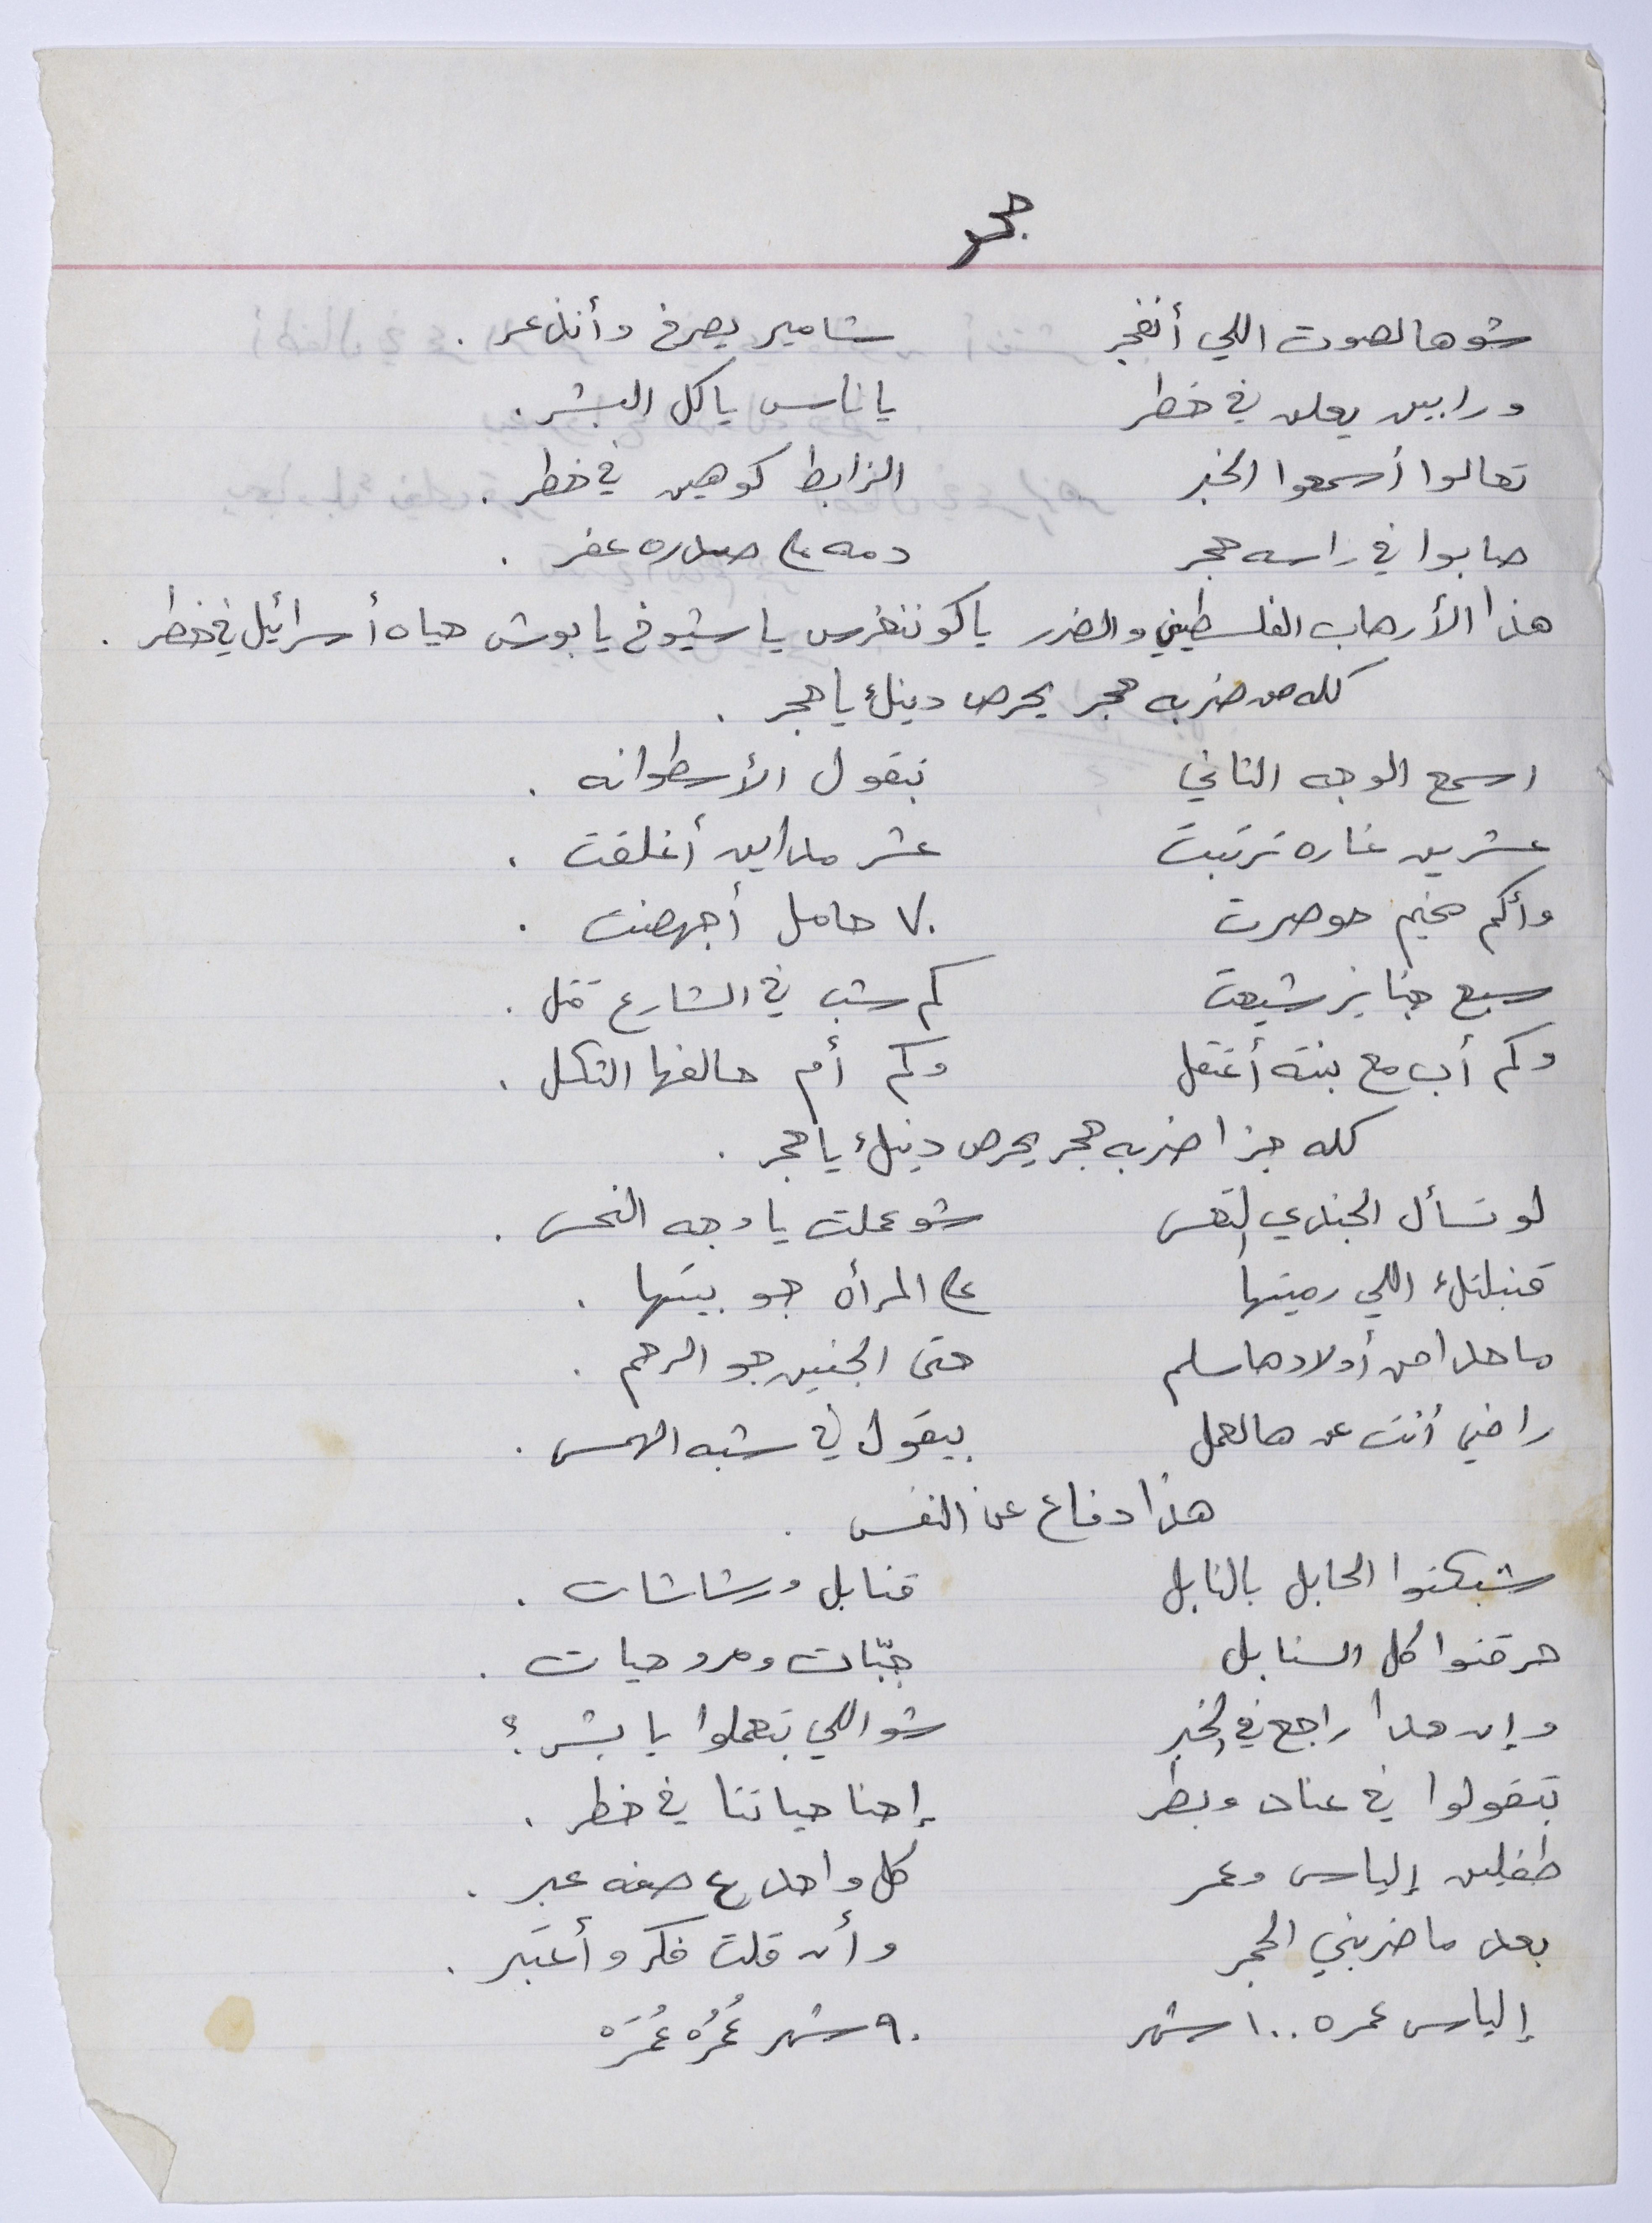 حجر
شو هالصوت اللي أنفجر شامير يصرخ وأنذعر .
ورابين يعلن في خطر يا ناس يا كل البشر .
تعالوا أسمعوا الخبر الزابط كوهين في خطر .
صابوا في راسه حجر دمه ع صدره عفر .
هذا الأرهاب الفلسطيني والضرر يا كونغرس يا شيوخ يا بوش حياه أسرائيل في خطر .
كله من ضربه حجر يحرص دينك يا حجر .
اسمع الوجه الثاني بتقول الأسطوانه .
عشرين غاره ترتبت عشر مداين أغلقت .
وأكم مخيم حوصرت ٧٠ حامل أجهضت .
سبع جنايز شيعت كم شب في الشارع قتل .
وكم أب مع بنته أعتقل وكم أم حالفها الثكل .
كله جزا ضربه حجر يحرص دينك يا حجر .
لو تسأل الجندي التعس شو عملت يا وجه النحس .
قنبلتك اللي رميتها ع المرأه جو بيتها .
ما حدا من أولادها سلم حتى الجنين جو الرحم .
راضي أنت عن هالعمل بيقول في شبه الهمس .
هذا دفاع عن النفس .
شبكتوا الحابل بالنابل قنابل ورشاشات .
حرقتوا كل السنابل جبّات ومروحيات .
وإن حدا راجع في الخبر شو اللي بتعملوا يا بشر ؟
بتقولوا في عناد وبطر إحنا حياتنا في خطر .
طفلين إلياس وعمر كل واحد ع صفه عبر .
بعد ما ضربني الحجر وأن قلت فكر وأعتبر .
إلياس عمره ١٠٠ شهر ٩٠ شهر عُمرُه عُمَرْ